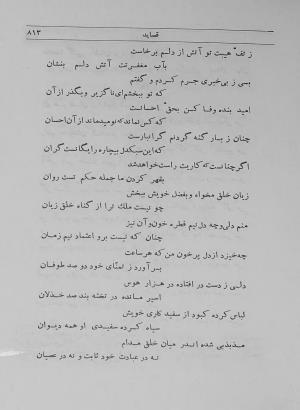 ۸۱۳
قصاید
ز تف هیبت تو آتش از دلم برخاست
بآب مغفرتت آتش دلم بنشان
بسی ز بی‌خبری جرم کردم و گفتم
که تو ببخشی ای ناگزیر وبگذر از آن
امید بنده وفا کن بحق احسانت
که کس نماند که نومید ماند از آن احسان
چنان ز بار گنه گردنم گرانبارست
که این سبکدل بیچاره را بگناست گران
اگر چنانست که کاریت راست خواهد شد
بقهر کردن ما جمله حکم تست روان
زیان خلق مخواه و بفضل خویش ببخش
چو نیست ملک ترا از گناه خلق زیان
منم دلی وچه دل نیم قطرهٔ خون وآن نیز
چنان که نیست برو اعتماد نیم زمان
چه خیزد از دل پرخون من که هر ساعت
برآورد ز تمنای خود دو صد طوفان
دلی ز دست در افتاده در هزار هوس
اسیر مانده در تخته بند صد خذلان
لباس کرده کبود از سفید کاری خویش
سیاه کرده سفیدی او همه دیوان
مذبذبی شده اندر میان خلق مدام
نه در عبادت خود ثابت و نه در عصیان